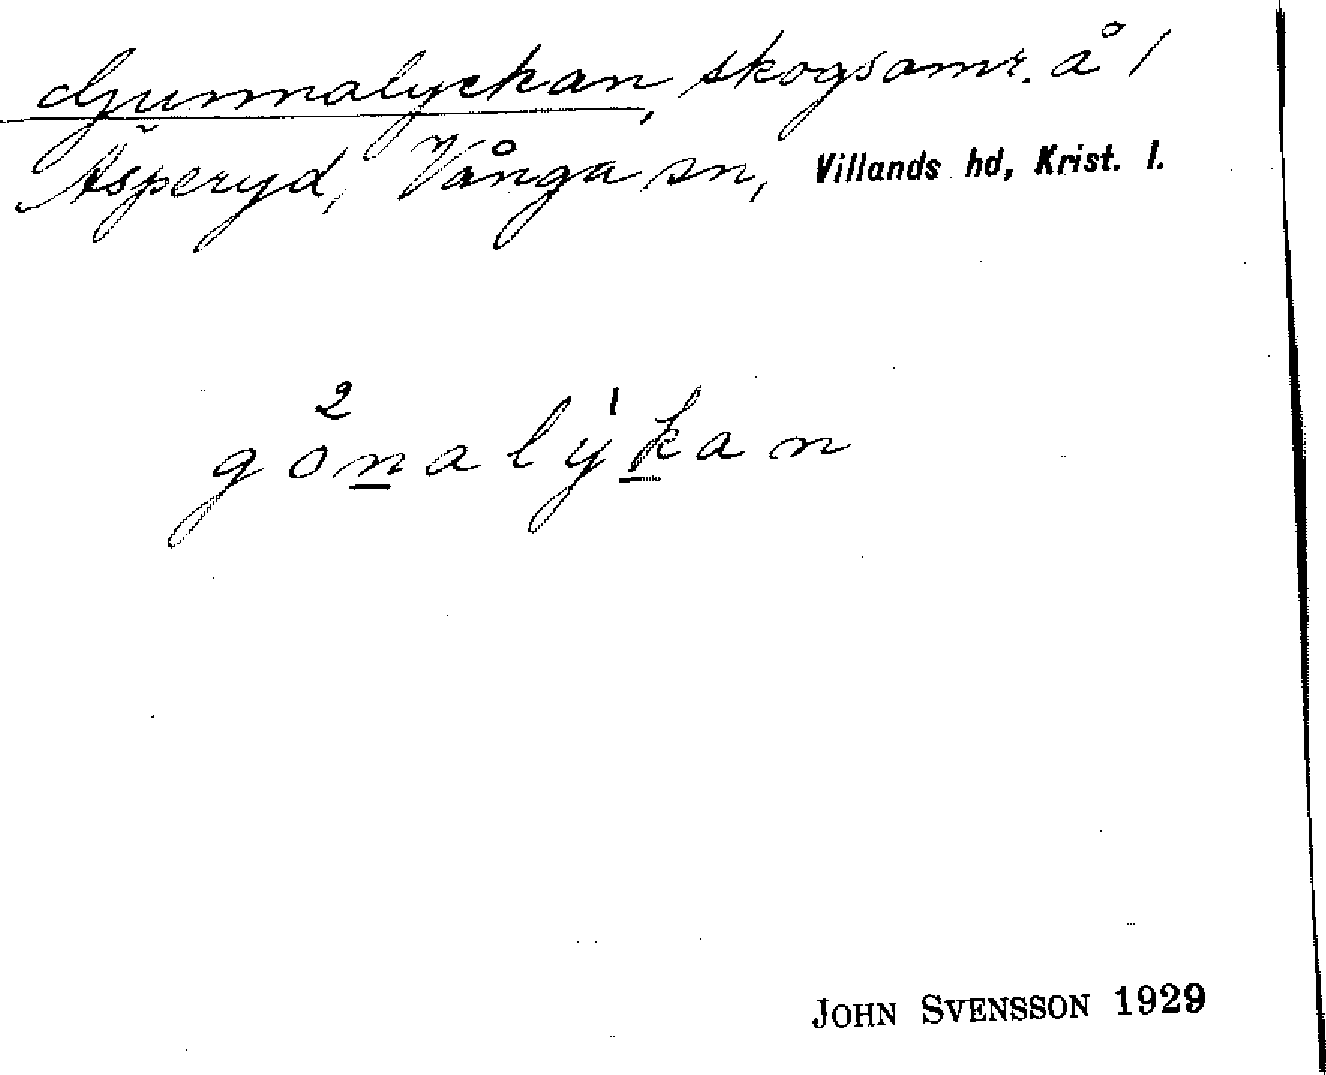 Gunnalyckan, skogsområ. å /
Äsperyd, Vånga sn, Villands hd, Krist. l.
2 1
gonalykan
JOHN SVENSSON 1929